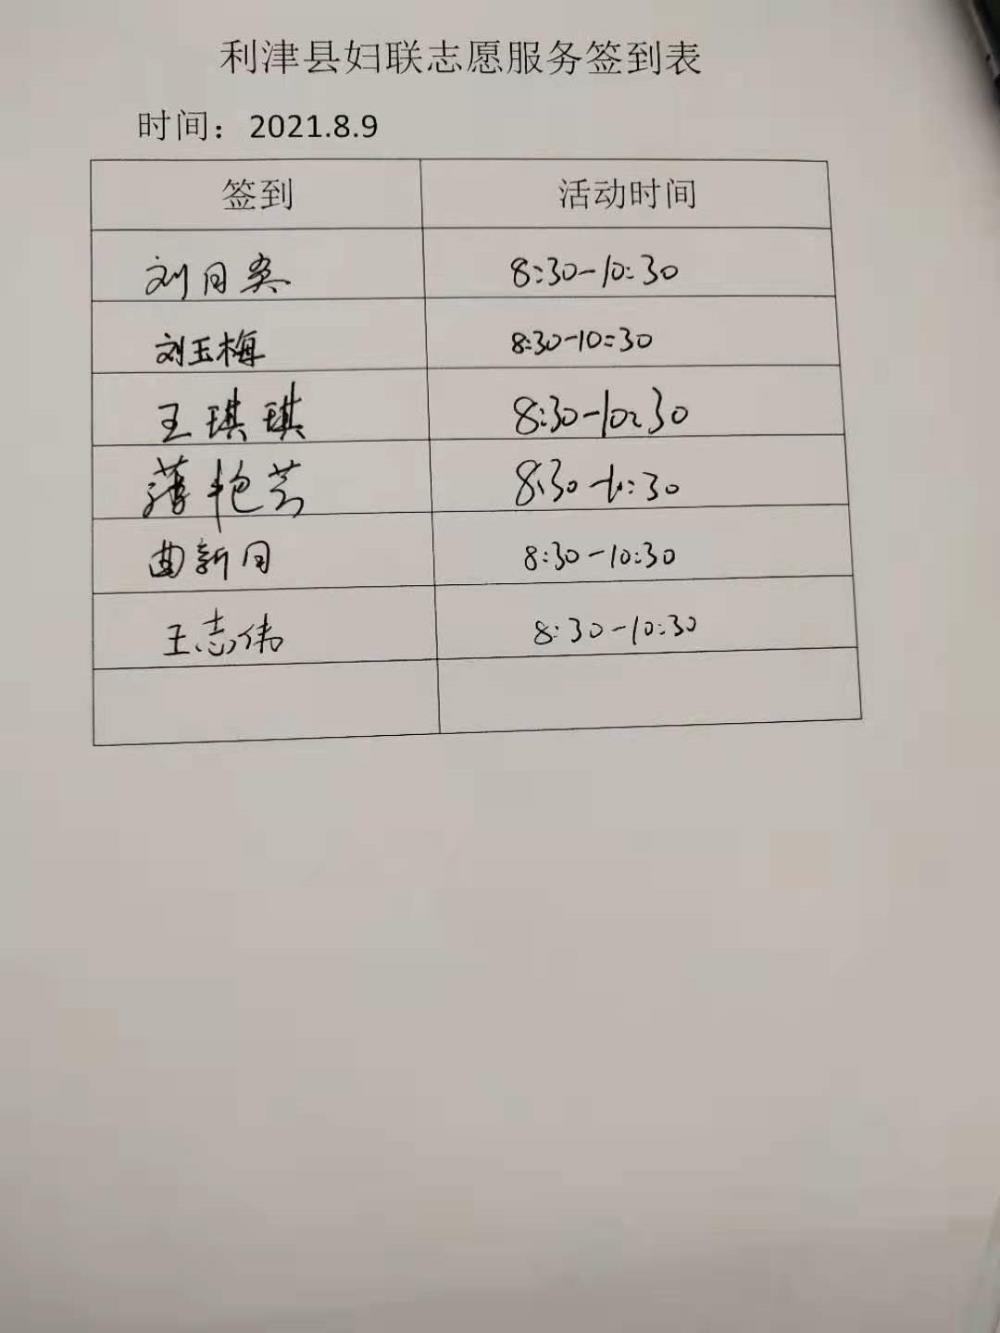 利津县妇联志愿服务签到表
时间：2021.8.9
签到 活动时间
刘月英 8:30-10:30
刘玉梅 8:30-10:30
王琪琪 8:30-10:30
薄艳芳 8:30-10:30
曲新月 8:30-10:30
王志伟 8:30-10:30